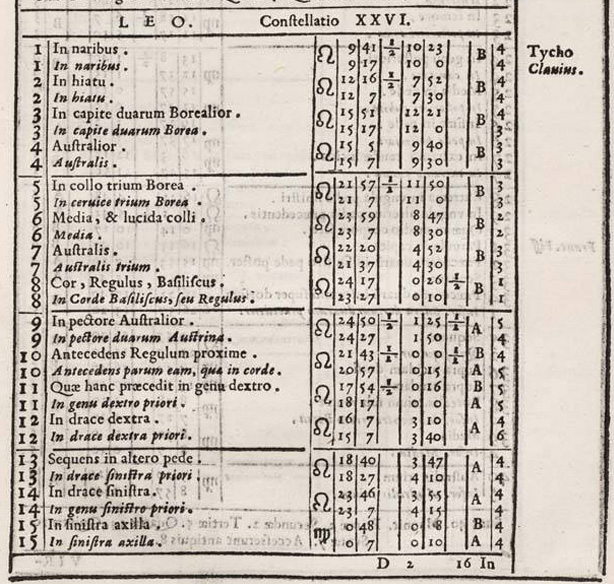 LEO. Constellatio XXVI.
1 In naribus. ♌ 9 41 ½ 10 23 B 4
1 In naribus. 9 17 10 0 4
2 In hiatu. ♌ 12 16 ½ 7 52 B 4
2 In hiatu. 12 7 7 30 4
3 In capite duarum Borealior. ♌ 15 51 12 21 B 3
3 In capite duarum Borea. 15 17 12 0 3
4 Australior. ♌ 15 5 9 40 B 3
4 Australis. 15 7 9 30 3
5 In collo trium Borea. ♌ 21 57 ½ 11 50 B 3
5 In ceruice trium Borea. 21 7 11 0 3
6 Media, & lucida colli. ♌ 23 59 8 47 B 2
6 Media. 23 7 8 30 2
7 Australis. ♌ 22 20 4 52 B 3
7 Australis trium. 21 37 4 30 3
8 Cor, Regulus, Basiliscus. ♌ 24 17 0 26 ½ B 1
8 In Corde Basiliscus, seu Regulus. 23 27 0 10 1
9 In pectore Australior. ♌ 24 50 ½ 1 25 ½ A 5
9 In pectore duarum Austrina. 24 27 1 50 4
10 Antecedens Regulum proxime. ♌ 21 43 ½ 0 0 ½ B 4
10 Antecedens parum eam, quæ in corde. 20 57 0 15 A 5
11 Quæ hanc præcedit in genu dextro. ♌ 17 54 ½ 0 16 B 5
11 In genu dextro priori. 18 17 0 0 A 5
12 In drace dextra. ♌ 16 7 3 10 A 4
12 In drace dextra priori. 15 7 3 40 6
13 Sequens in altero pede. ♌ 18 40 3 47 A 4
13 In drace sinistra priori. 18 27 4 10 4
14 In drace sinistra. ♌ 23 46 3 55 A 4
14 In genu sinistro priori. 23 7 4 15 4
15 In sinistra axilla ♍ 0 48 0 8 B 4
15 In sinistra axilla. 0 7 0 10 A 4
D 2 16 In
Tycho
Clauius.